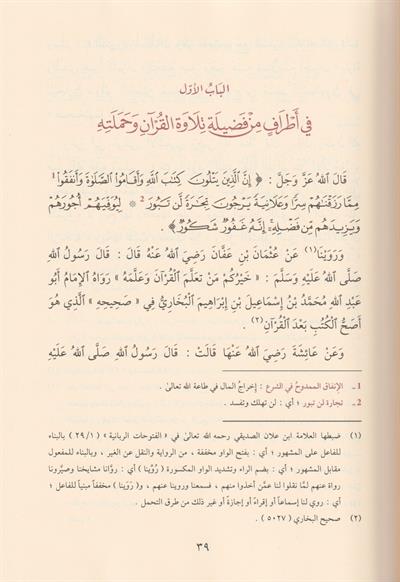 البَابُ الأَوَّل
في أَطْرَافٍ مِنْ فَضِيلَةِ تِلَاوَةِ القُرْآنِ وَحَمَلَتِهِ
قَالَ ٱللهُ عَزَّ وَجَلَّ : ﴿ إِنَّ ٱلَّذِينَ يَتْلُونَ كِتَٰبَ ٱللَّهِ وَأَقَامُوا۟ ٱلصَّلَوٰةَ وَأَنفَقُوا۟ 1
مِمَّا رَزَقْنَٰهُمْ سِرًّا وَعَلَانِيَةً يَرْجُونَ تِجَٰرَةً لَّن تَبُورَ 2 * لِيُوَفِّيَهُمْ أُجُورَهُمْ
وَيَزِيدَهُم مِّن فَضْلِهِۦٓ إِنَّهُۥ غَفُورٌ شَكُورٌ ﴾ .
وَرَوَيْنَا (١) عَنْ عُثْمَانَ بْنِ عَفَّانَ رَضِيَ ٱللهُ عَنْهُ قَالَ : قَالَ رَسُولُ ٱللهِ
صَلَّى ٱللهُ عَلَيْهِ وَسَلَّمَ : « خَيْرُكُمْ مَنْ تَعَلَّمَ ٱلْقُرْآنَ وَعَلَّمَهُ » رَوَاهُ ٱلإِمَامُ أَبُو
عَبْدِ ٱللهِ مُحَمَّدُ بْنُ إِسْمَاعِيلَ بْنِ إِبْرَاهِيمَ ٱلْبُخَارِيُّ فِي « صَحِيحِهِ » ٱلَّذِي هُوَ
أَصَحُّ ٱلْكُتُبِ بَعْدَ ٱلْقُرْآنِ (٢) .
وَعَنْ عَائِشَةَ رَضِيَ ٱللهُ عَنْهَا قَالَتْ : قَالَ رَسُولُ ٱللهِ صَلَّى ٱللهُ عَلَيْهِ
1 ـ الإنفاق الممدوحُ في الشرع : إخراجُ المال في طاعة الله تعالىٰ .
2 ـ تجارة لن تبور ؛ أي : لن تهلك وتفسد .
(١) ضبطها العلامة ابن علان الصديقي رحمه الله تعالىٰ في « الفتوحات الربانية » ( ٢٩/١ ) بالبناء
للفاعل على المشهور ؛ أي : بفتح الواو مخففة ، من الرواية والنقل عن الغير ، وبالبناء للمفعول
مقابل المشهور ؛ أي : بضم الراء وتشديد الواو المكسورة ( رُوِّينا ) أي : روَّانا مشايخنا وصيَّرونا
رواة عنهم لمَّا نقلوا لنا عمَّن أخذوا منهم ، فسمعنا وروينا عنهم ، و( رَوَينا ) مخففاً مبنياً للفاعل ؛
أي : روي لنا إسماعاً أو إقراءً أو إجازةً أو غير ذلك من طرق التحمل .
(٢) صحيح البخاري ( ٥٠٢٧ ) .
٣٩